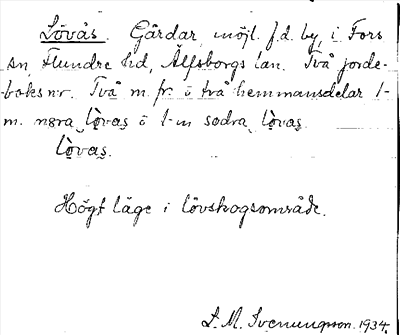 Lövås. Gårdar, möjl. f.d. by, i Fors
sn, Flundre hd, Älfsborgs län. Två jorde-
boksnr. Två m. fr. o två hemmansdelar l-
m. nɷra lò̩vas̩ o l-m sɷdra lò̩vas̩
lò̩vas̩.
Högt läge i lövskogsområde.
L. M. Svenungsson. 1934.